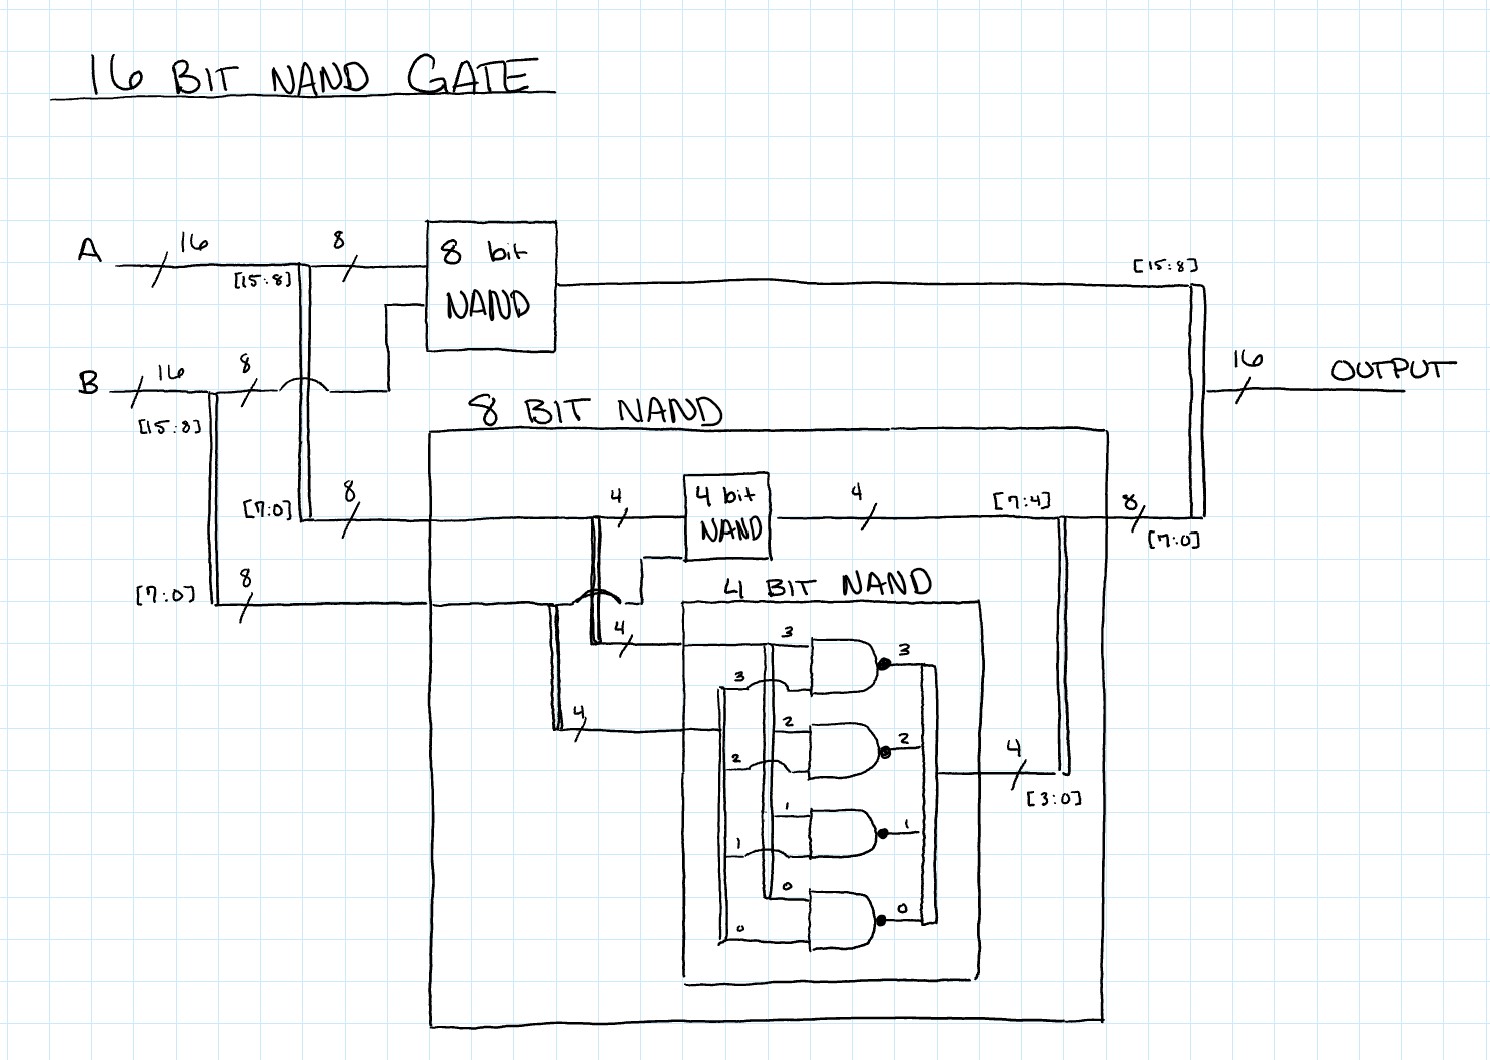 16 BIT NAND GATE
A
16
[15:8]
8
8 bit
NAND
[15:8]
B
16
8
[15:8]
16
OUTPUT
8 BIT NAND
[7:0]
8
4
4 bit
NAND
4
[7:4]
8
[7:0]
[7:0]
8
4 BIT NAND
4
3
3
3
4
2
2
2
4
[3:0]
1
1
1
0
0
0